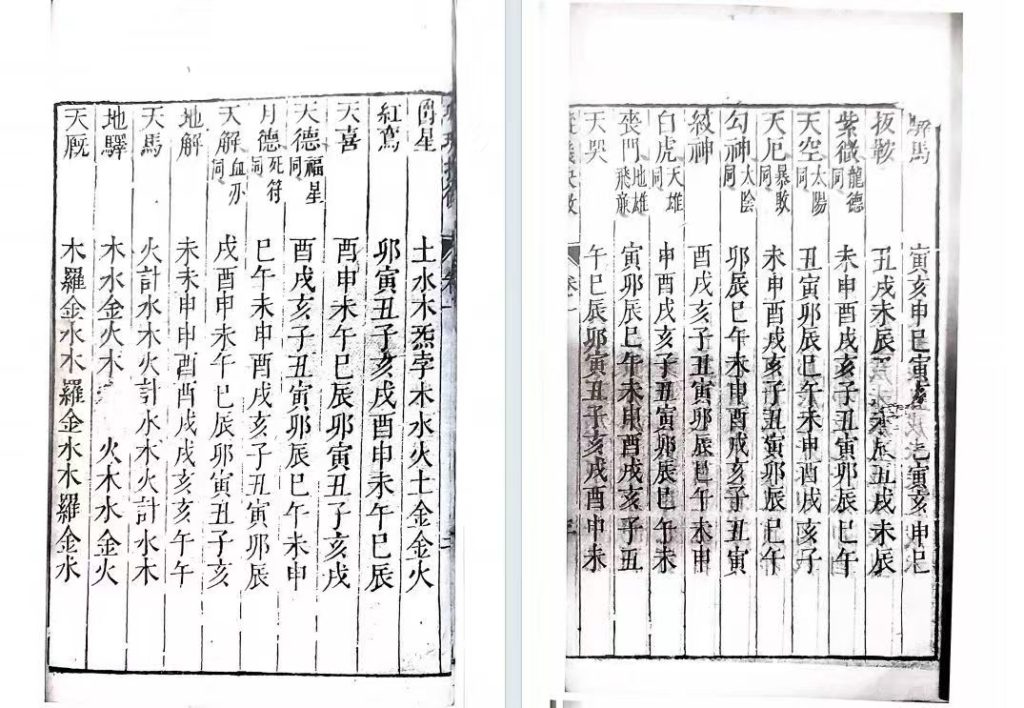 驛馬 寅亥申巳寅亥巳寅亥申巳
扳鞍 丑戌未辰丑戌未辰丑戌未辰
紫微 龍德同 未申酉戌亥子丑寅卯辰巳午
天空 太陽同 丑寅卯辰巳午未申酉戌亥子
天厄 暴敗同 未申酉戌亥子丑寅卯辰巳午
勾神 太陰同 卯辰巳午未申酉戌亥子丑寅
絞神 酉戌亥子丑寅卯辰巳午未申
白虎 天雄同 申酉戌亥子丑寅卯辰巳午未
喪門 地雄飛廉同 寅卯辰巳午未申酉戌亥子丑
天哭 午巳辰卯寅丑子亥戌酉申未
卷一
卷一
爵星 土水木炁孛木水火土金金火
紅鸞 卯寅丑子亥戌酉申未午巳辰
天喜 酉申未午巳辰卯寅丑子亥戌
天德 福星同 酉戌亥子丑寅卯辰巳午未申
月德 死符同 巳午未申酉戌亥子丑寅卯辰
天解 血刃同 戌酉申未午巳辰卯寅丑子亥
地解 未未申申酉酉戌戌亥亥午午
天馬 火計水木火計水木火計水木
地驛 木水金火木 火木水金火
天厩 木羅金水木羅金水木羅金水